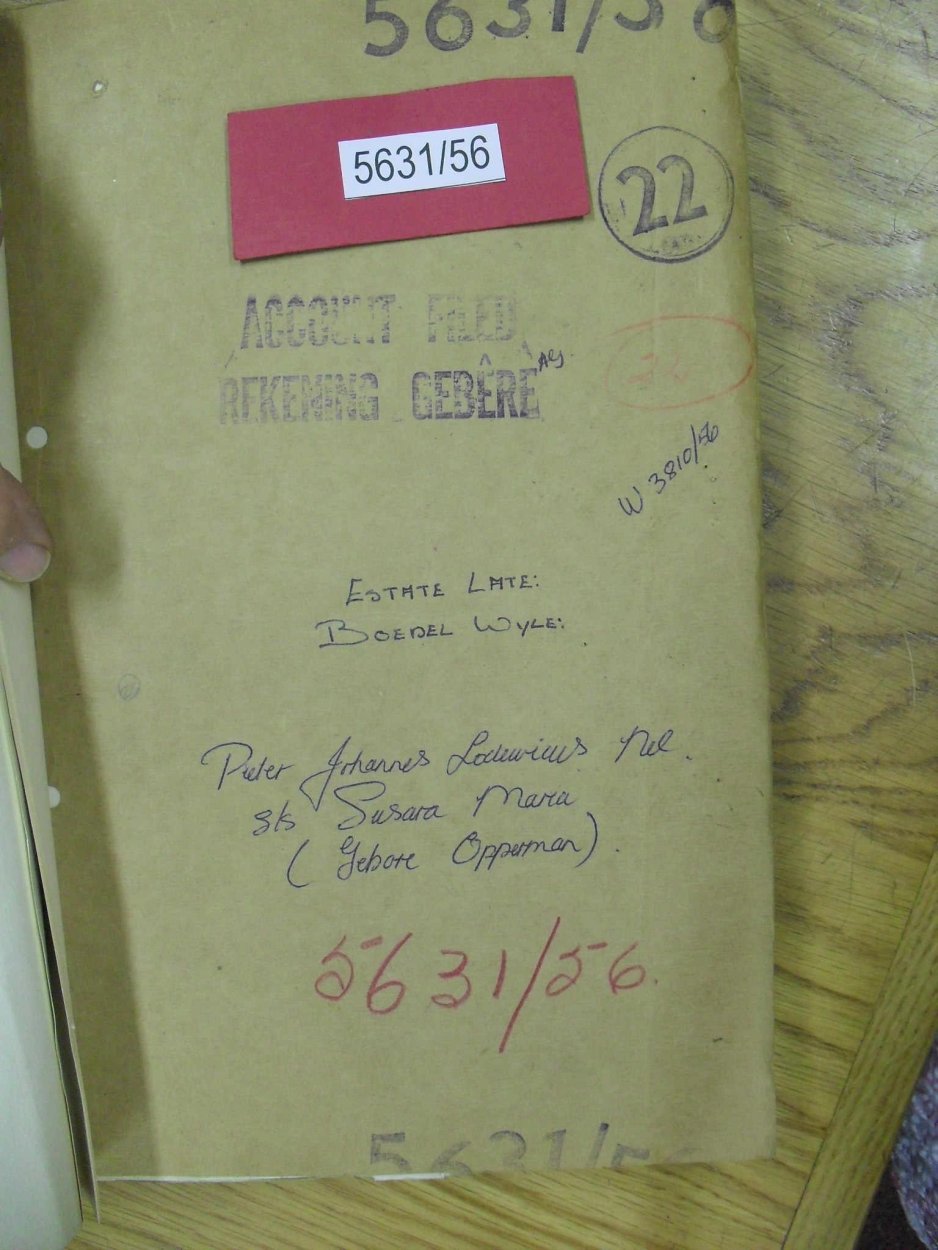 5631/56
5631/56
22
ACCOUNT FILED
REKENING GEBÊRE
W 3810/56
ESTATE LATE:
BOEDEL WYLE:
Pieter Johannes Lodewicus Nel.
sks Susara Maria
(Gebore Opperman).
5631/56.
5631/56